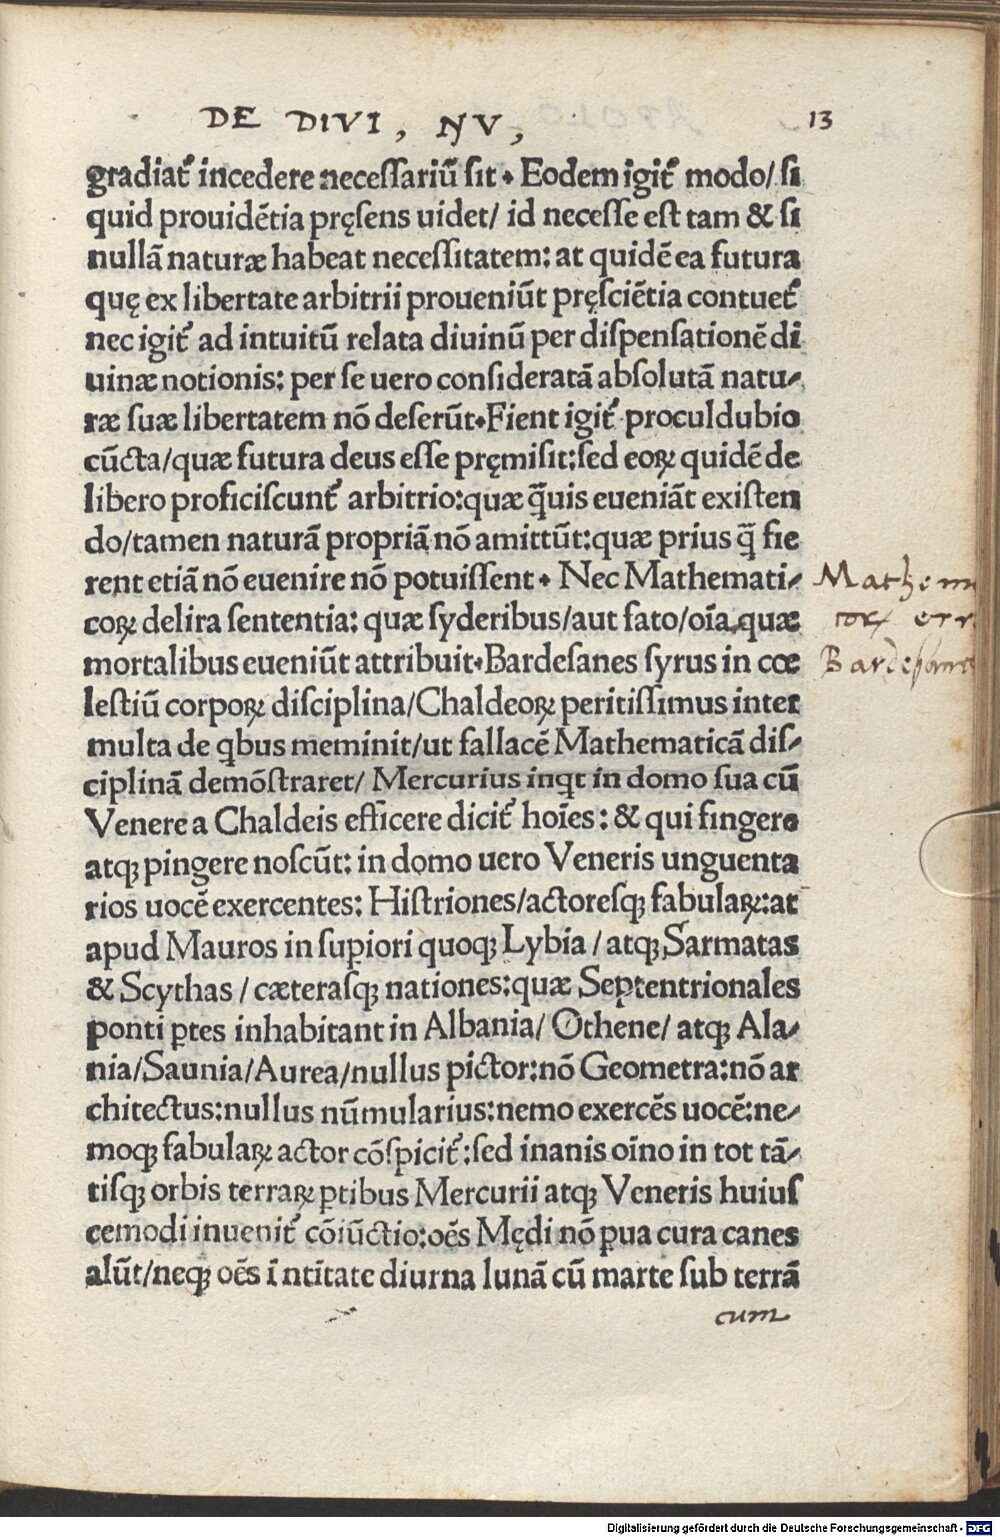 DE DIVI, NV, 13
gradiat᷑ incedere neceſſariũ ſit. Eodem igit᷑ modo/ ſi
quid prouidẽtia pręſens uidet/ id neceſſe eſt tam & ſi
nullã naturæ habeat neceſſitatem: at quidẽ ea futura
quę ex libertate arbitrii proueniũt pręſciẽtia contuet᷑
nec igit᷑ ad intuitũ relata diuinũ per diſpenſationẽ di
uinæ notionis: per ſe uero conſideratã abſolutã natu-
ræ ſuæ libertatem nõ deſerũt. Fient igit᷑ proculdubio
cũcta/quæ futura deus eſſe pręmiſit: ſed eoꝝ quidẽ de
libero proficiſcunt᷑ arbitrio: quæ q̃uis eueniãt exiſten
do/tamen naturã propriã nõ amittũt: quæ prius q̃ fie
rent etiã nõ euenire nõ potuiſſent. Nec Mathemati-
coꝝ delira ſententia: quæ ſyderibus/aut fato/oĩa quæ
mortalibus eueniũt attribuit. Bardeſanes ſyrus in cœ
leſtiũ corpoꝝ diſciplina/Chaldeoꝝ peritiſſimus inter
multa de qbus meminit/ut fallacẽ Mathematicã diſ-
ciplinã demõſtraret/ Mercurius inqt in domo ſua cũ
Venere a Chaldeis efficere dicit᷑ hoĩes: & qui fingere
atqꝫ pingere noſcũt: in domo uero Veneris unguenta
rios uocẽ exercentes: Hiſtriones/actoreſqꝫ fabulaꝝ: at
apud Mauros in ſupiori quoqꝫ Lybia / atqꝫ Sarmatas
& Scythas / cæteraſqꝫ nationes: quæ Septentrionales
ponti ꝑtes inhabitant in Albania/ Othene/ atqꝫ Ala-
nia/Saunia/Aurea/nullus pictor: nõ Geometra: nõ ar
chitectus: nullus nũmularius: nemo exercẽs uocẽ: ne-
moqꝫ fabulaꝝ actor cõſpicit᷑: ſed inanis oĩno in tot tã-
tiſqꝫ orbis terraꝝ ꝑtibus Mercurii atqꝫ Veneris huiuſ
cemodi inuenit᷑ cõiũctio: oẽs Mędi nõ ꝑua cura canes
alũt/neqꝫ oẽs ĩ ntĩtate diurna lunã cũ marte ſub terrã
cum
Mathem
toꝝ err
Bardesanes